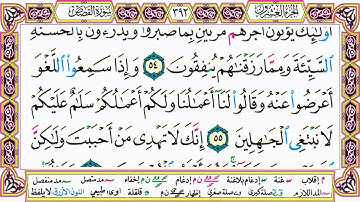 سورة القصص ٣٩٢ الجزء العشرون
أولئك يؤتون أجرهم مرتين بما صبروا ويدرءون بالحسنة
السيئة ومما رزقنهم ينفقون ٥٤ وإذا سمعوا اللغو
أعرضوا عنه وقالوا لنا أعملنا ولكم أعملكم سلم عليكم
لا نبتغي الجهلين ٥٥ إنك لا تهدي من أحببت ولكن